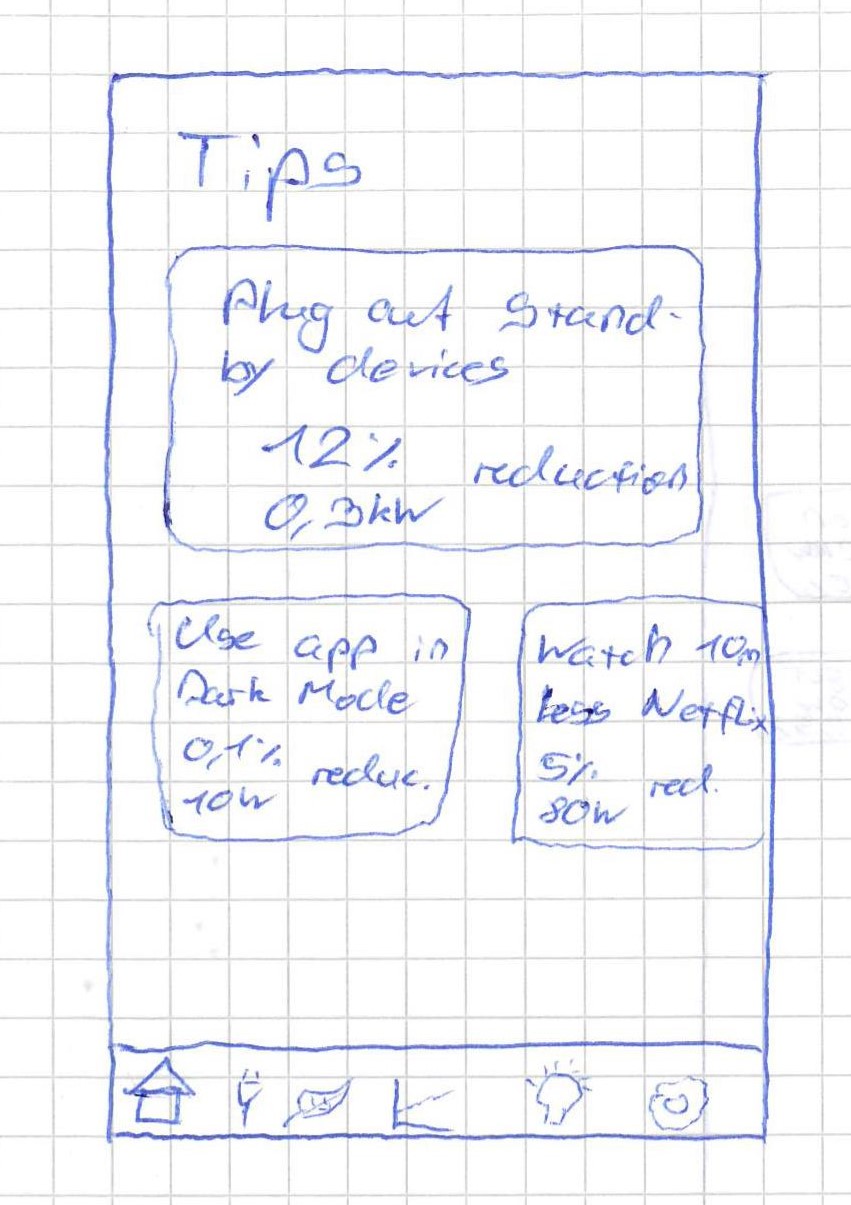 Tips
Plug out Stand-
by devices
12%
0,3kW reduction
Use app in
Dark Mode
0,1%
10W reduc.
Watch 10m
less Netflix
5%
80W red.